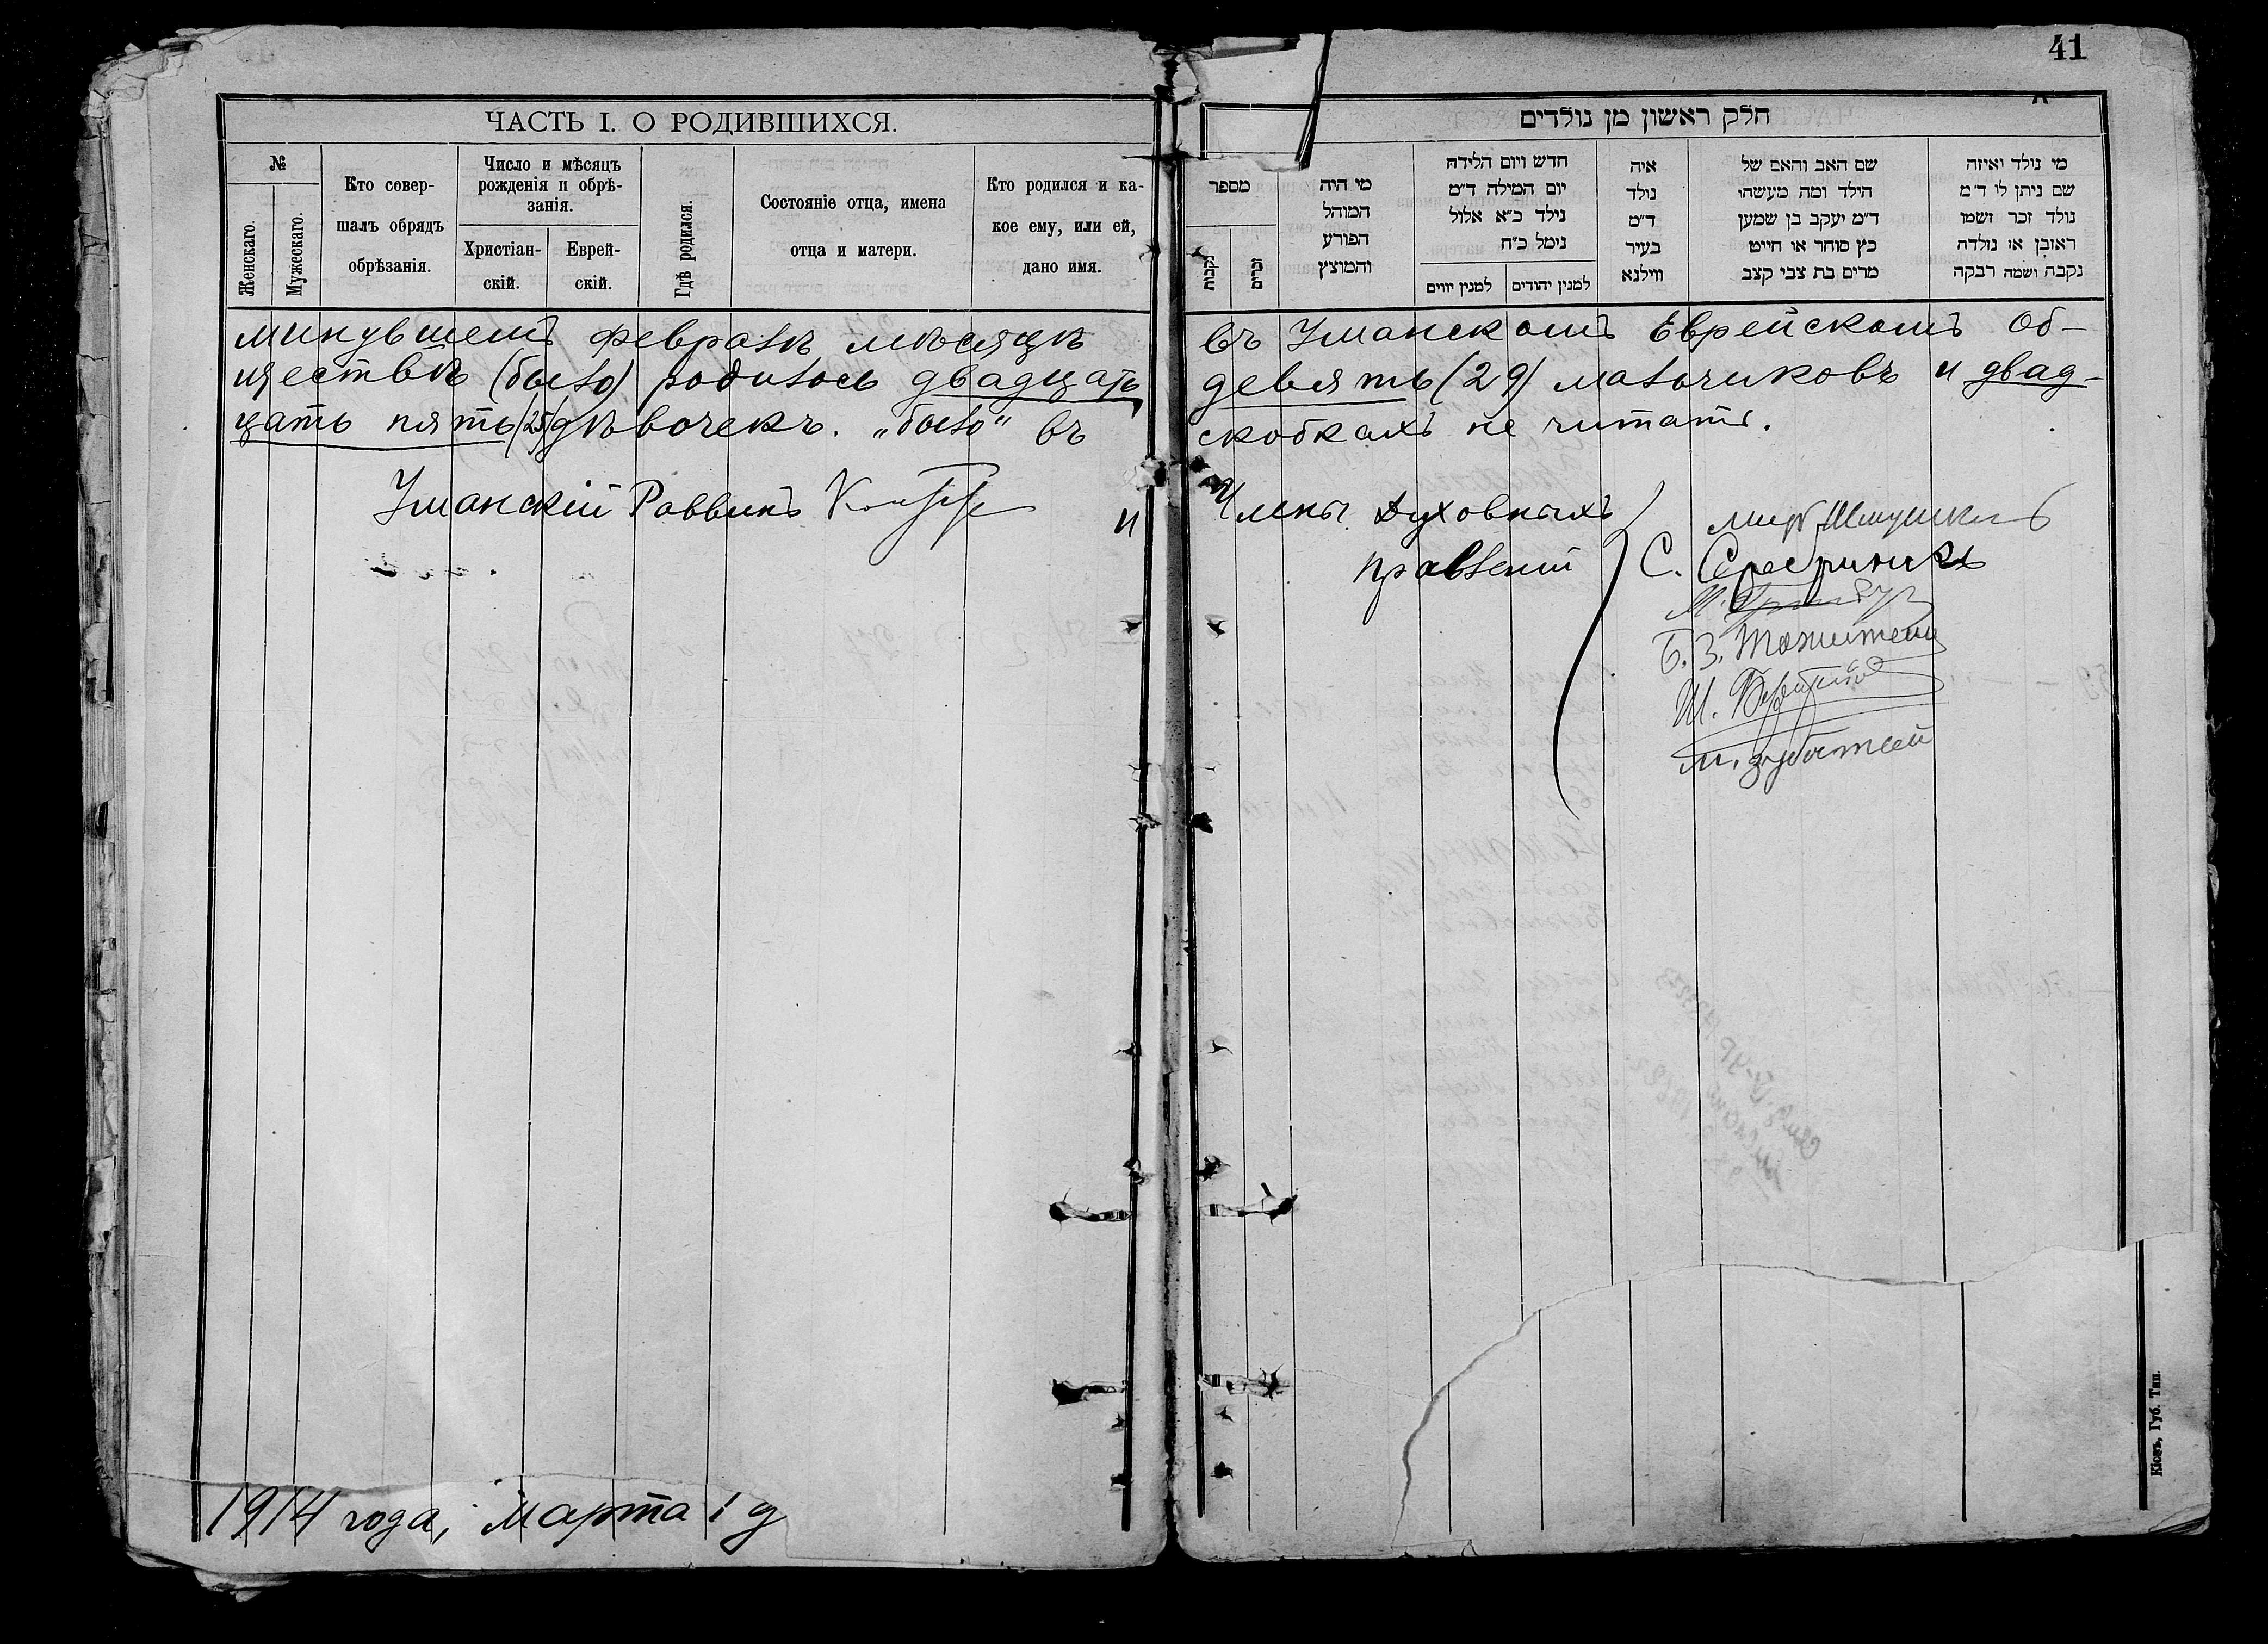 41
ЧАСТЬ I. О РОДИВШИХСЯ.
№
Женскаго.
Мужескаго.
Кто совер-
шалъ обрядъ
обрѣзанія.
Число и мѣсяцъ
рожденія и обрѣ-
занія.
Христіан-
скій.
Еврей-
скій.
Гдѣ родился.
Состояніе отца, имена
отца и матери.
Кто родился и ка-
кое ему, или ей,
дано имя.
חלק ראשון מן נולדים
מספר
נקבות
זכרים
מי היה
המוהל
הפורע
והמוצץ
חדש ויום הלידה
יום המילה ד"מ
נילד כ"א אלול
נימל כ"ח
למנין יווים
למנין יהודים
איה
נולד
ד"מ
בעיר
ווילנא
שם האב והאם של
הילד ומה מעשהו
ד"מ יעקב בן שמען
כץ סוחר או חייט
מרים בת צבי קצב
מי נולד ואיזה
שם ניתן לו ד"מ
נולד זכר ושמו
ראובן או נולדה
נקבה ושמה רבקה
минувшемъ февралѣ мѣсяцѣ въ Уманскомъ Еврейскомъ Об-
ществѣ (было) родилось двадцать девять (29) мальчиковъ и двад-
цать пять (25) дѣвочекъ. „было" въ скобкахъ не читать.
Уманскій Раввинъ
и Члены Духовныхъ
Правленій
С.
М.
Б. З.
Ш.
М. Зубатый
1914 года, Марта 1 д
Кіевъ, Губ. Тип.